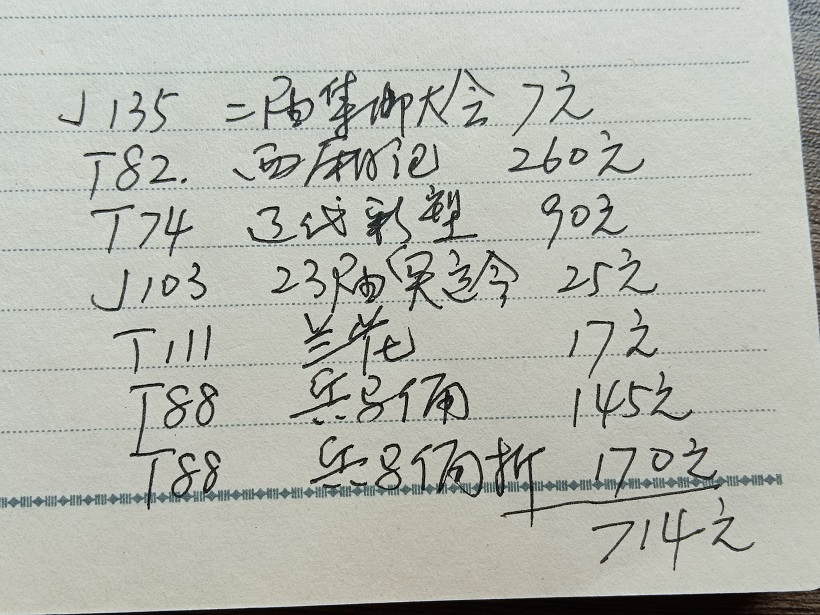 J135 二届集邮大会 7元
T82. 西厢记 260元
T74 辽代彩塑 90元
J103 23届奥运会 25元
T111 兰花 17元
T88 兵马俑 145元
T88 兵马俑折 170元
714元